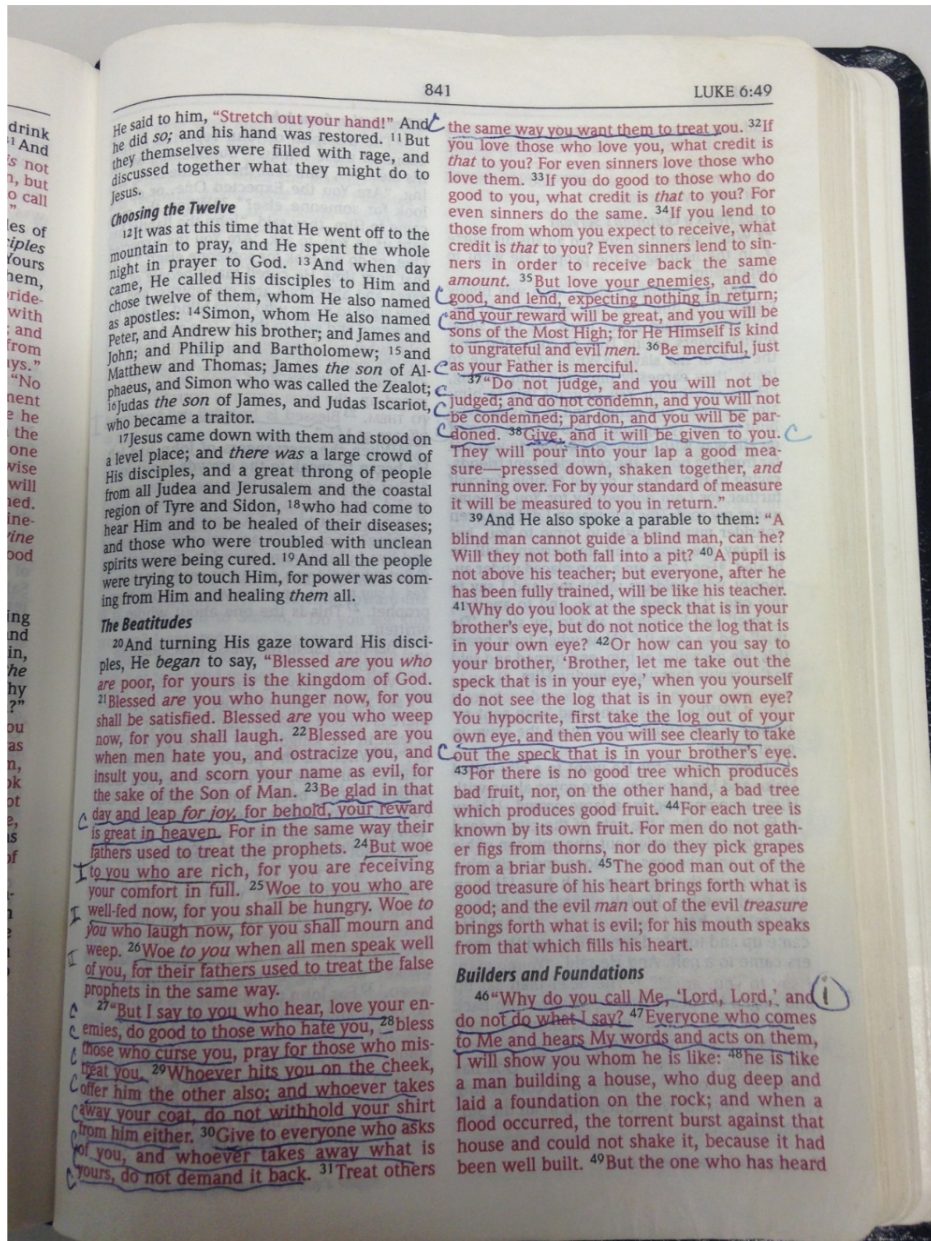 841
LUKE 6:49
drink
41 And
is not
n, but
o call
"
les of
ciples
Yours
hem,
oride-
with
; and
from
ays."
"No
ment
e he
the
one
wise
will
ned.
ine-
vine
ood
ing
and
in,
the
hy
?"
ou
as
n,
ok
ot
e,
as
of
He said to him, "Stretch out your hand!" And
he did so; and his hand was restored. 11But
they themselves were filled with rage, and
discussed together what they might do to
Jesus.
Choosing the Twelve
12It was at this time that He went off to the
mountain to pray, and He spent the whole
night in prayer to God. 13And when day
came, He called His disciples to Him and
chose twelve of them, whom He also named
as apostles: 14Simon, whom He also named
Peter, and Andrew his brother; and James and
John; and Philip and Bartholomew; 15and
Matthew and Thomas; James the son of Al-
phaeus, and Simon who was called the Zealot;
16Judas the son of James, and Judas Iscariot,
who became a traitor.
17Jesus came down with them and stood on
a level place; and there was a large crowd of
His disciples, and a great throng of people
from all Judea and Jerusalem and the coastal
region of Tyre and Sidon, 18who had come to
hear Him and to be healed of their diseases;
and those who were troubled with unclean
spirits were being cured. 19And all the people
were trying to touch Him, for power was com-
ing from Him and healing them all.
The Beatitudes
20And turning His gaze toward His disci-
ples, He began to say, "Blessed are you who
are poor, for yours is the kingdom of God.
21Blessed are you who hunger now, for you
shall be satisfied. Blessed are you who weep
now, for you shall laugh. 22Blessed are you
when men hate you, and ostracize you, and
insult you, and scorn your name as evil, for
the sake of the Son of Man. 23Be glad in that
C day and leap for joy, for behold, your reward
is great in heaven. For in the same way their
fathers used to treat the prophets. 24But woe
I to you who are rich, for you are receiving
your comfort in full. 25Woe to you who are
I well-fed now, for you shall be hungry. Woe to
you who laugh now, for you shall mourn and
I weep. 26Woe to you when all men speak well
of you, for their fathers used to treat the false
prophets in the same way.
C 27"But I say to you who hear, love your en-
C emies, do good to those who hate you, 28bless
C those who curse you, pray for those who mis-
C treat you. 29Whoever hits you on the cheek,
C offer him the other also; and whoever takes
C away your coat, do not withhold your shirt
C from him either. 30Give to everyone who asks
C of you, and whoever takes away what is
C yours, do not demand it back. 31Treat others
C the same way you want them to treat you. 32If
you love those who love you, what credit is
that to you? For even sinners love those who
love them. 33If you do good to those who do
good to you, what credit is that to you? For
even sinners do the same. 34If you lend to
those from whom you expect to receive, what
credit is that to you? Even sinners lend to sin-
ners in order to receive back the same
amount. 35But love your enemies, and do
C good, and lend, expecting nothing in return;
C and your reward will be great, and you will be
sons of the Most High; for He Himself is kind
to ungrateful and evil men. 36Be merciful, just
C as your Father is merciful.
C 37"Do not judge, and you will not be
C judged; and do not condemn, and you will not
be condemned; pardon, and you will be par-
C doned. 38Give, and it will be given to you. C
They will pour into your lap a good mea-
sure—pressed down, shaken together, and
running over. For by your standard of measure
it will be measured to you in return."
39And He also spoke a parable to them: "A
blind man cannot guide a blind man, can he?
Will they not both fall into a pit? 40A pupil is
not above his teacher; but everyone, after he
has been fully trained, will be like his teacher.
41Why do you look at the speck that is in your
brother's eye, but do not notice the log that is
in your own eye? 42Or how can you say to
your brother, 'Brother, let me take out the
speck that is in your eye,' when you yourself
do not see the log that is in your own eye?
You hypocrite, first take the log out of your
own eye, and then you will see clearly to take
C out the speck that is in your brother's eye.
43For there is no good tree which produces
bad fruit, nor, on the other hand, a bad tree
which produces good fruit. 44For each tree is
known by its own fruit. For men do not gath-
er figs from thorns, nor do they pick grapes
from a briar bush. 45The good man out of the
good treasure of his heart brings forth what is
good; and the evil man out of the evil treasure
brings forth what is evil; for his mouth speaks
from that which fills his heart.
Builders and Foundations
46"Why do you call Me, 'Lord, Lord,' and i
do not do what I say? 47Everyone who comes
to Me and hears My words and acts on them,
I will show you whom he is like: 48he is like
a man building a house, who dug deep and
laid a foundation on the rock; and when a
flood occurred, the torrent burst against that
house and could not shake it, because it had
been well built. 49But the one who has heard